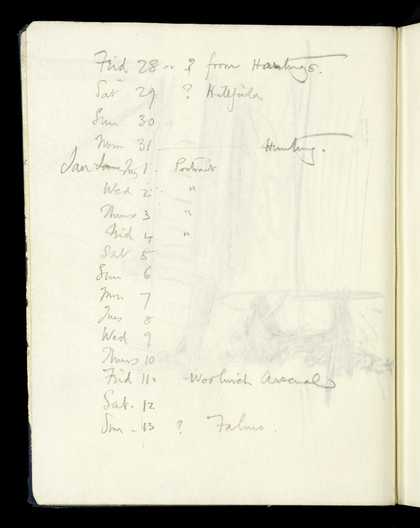 Frid 28 or ? from Hastings.
Sat 29 ?
Sun 30
Mon 31 Hunting.
Jan 1. Portrait
Wed 2. "
Thurs 3 "
Frid 4 "
Sat 5
Sun 6
Mon 7
Tues 8
Wed 9
Thurs 10
Frid 11. Woolwich Arsenal
Sat. 12
Sun - 13 ?